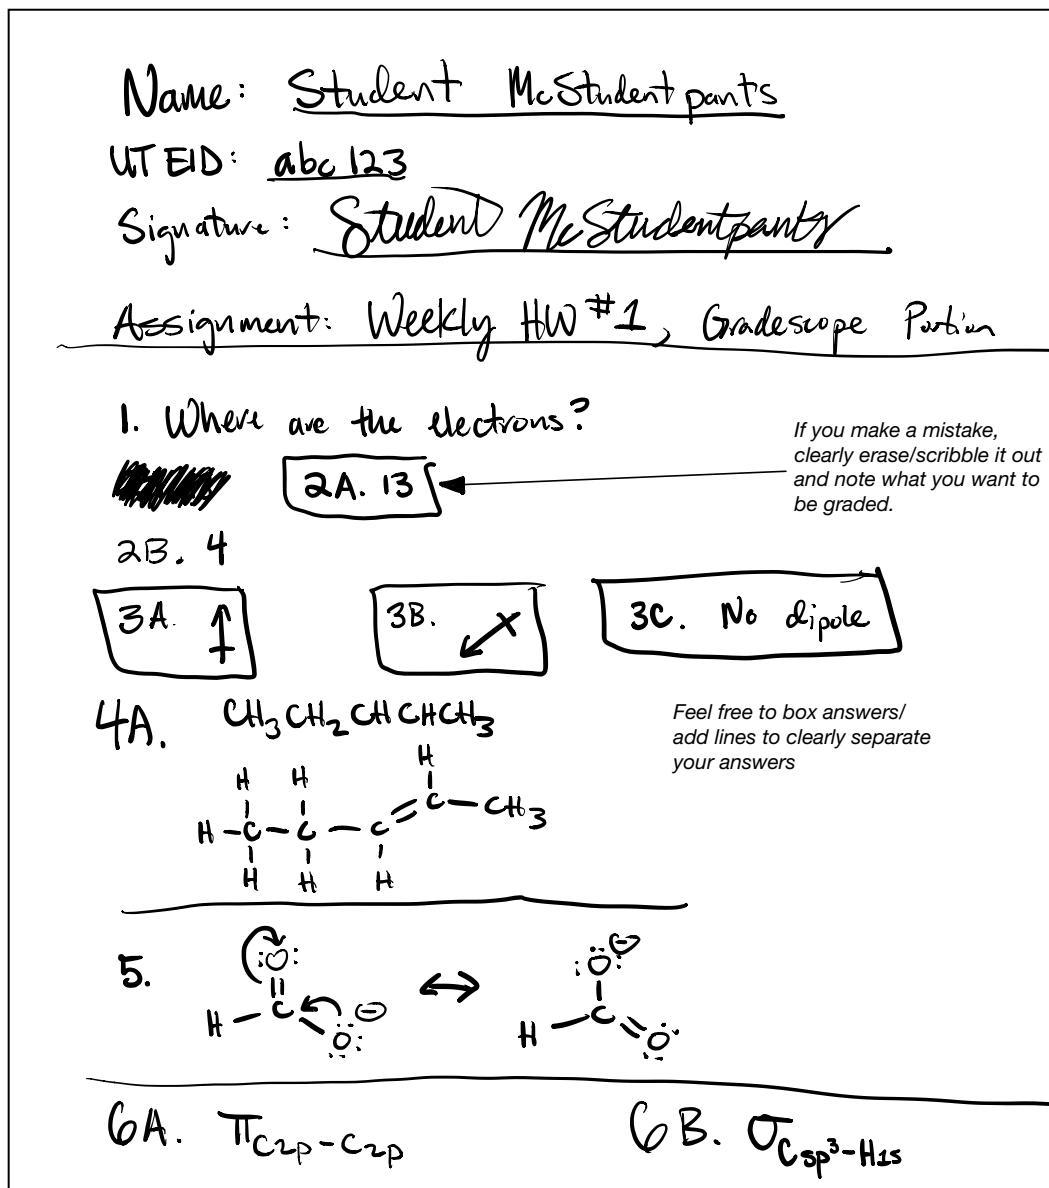 Name: Student McStudentpants
UT EID: abc123
Signature: Student McStudentpants
Assignment: Weekly HW #1, Gradescope Portion
1. Where are the electrons?
If you make a mistake,
clearly erase/scribble it out
and note what you want to
be graded.
2A. 13
2B. 4
3A. 3B. 3C. No dipole
4A. CH₃CH₂CHCHCH₃
Feel free to box answers/
add lines to clearly separate
your answers
H H H
H-C-C-C=C-CH₃
H H H
5.
:O: :O:⊖
H-C ↔ H-C
O ⊖ O
6A. π C2p-C2p 6B. σ Csp³-H1s